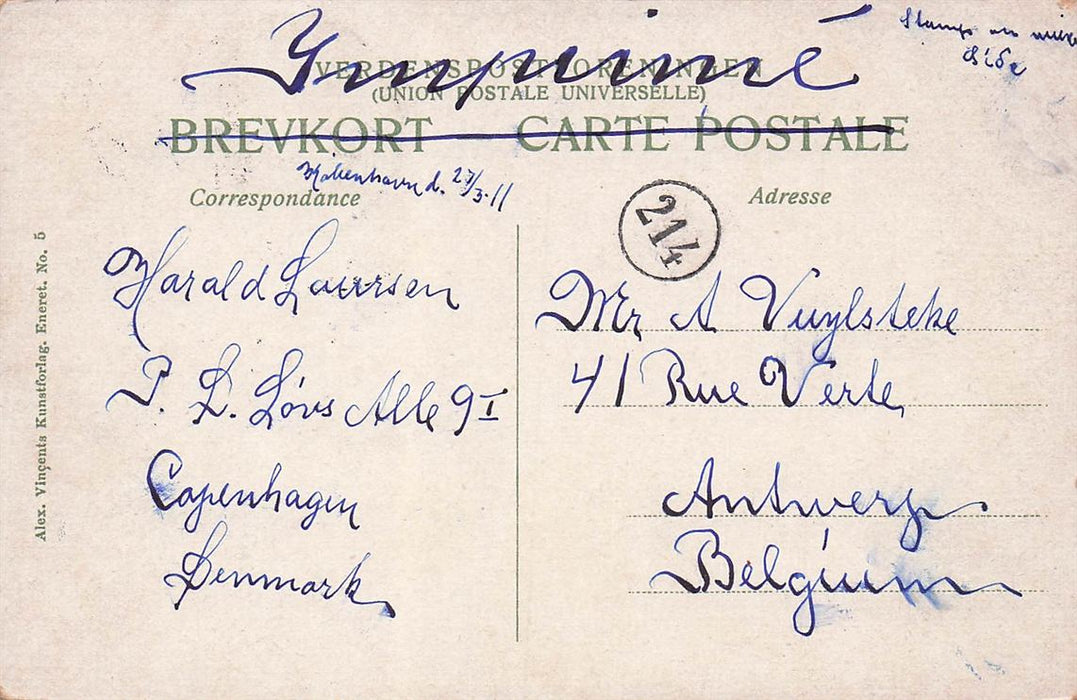 Imprimé
Stamp on
Side
VERDENSPOSTFORENINGEN
(UNION POSTALE UNIVERSELLE)
BREVKORT CARTE POSTALE
København d. 27/3-11
Correspondance
Adresse
214
Harald Laursen
P. D. Løvs Alle 9 I
Copenhagen
Denmark
Mr A Vuylsteke
41 Rue Verte
Antwerp.
Belgium
Alex. Vincents Kunstforlag. Eneret. No. 5